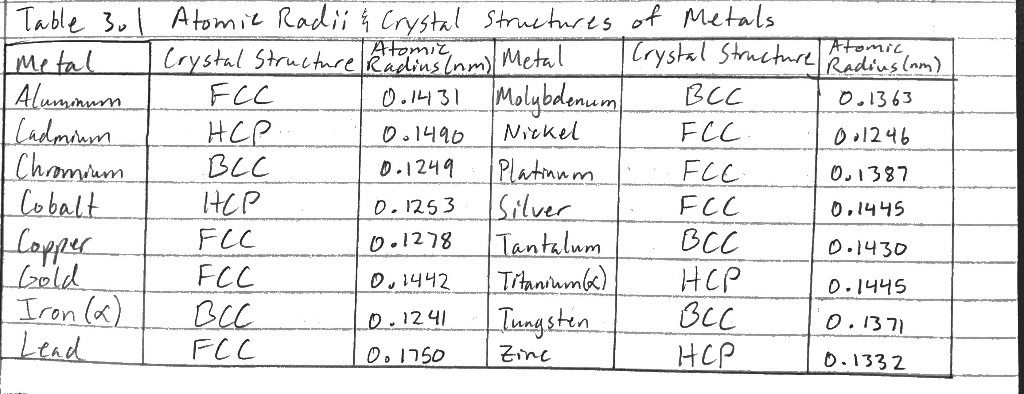 Table 3.1 Atomic Radii & Crystal Structures of Metals
Metal Crystal Structure Atomic Radius (nm) Metal Crystal Structure Atomic Radius (nm)
Aluminum FCC 0.1431 Molybdenum BCC 0.1363
Cadmium HCP 0.1490 Nickel FCC 0.1246
Chromium BCC 0.1249 Platinum FCC 0.1387
Cobalt HCP 0.1253 Silver FCC 0.1445
Copper FCC 0.1278 Tantalum BCC 0.1430
Gold FCC 0.1442 Titanium (α) HCP 0.1445
Iron (α) BCC 0.1241 Tungsten BCC 0.1371
Lead FCC 0.1750 Zinc HCP 0.1332